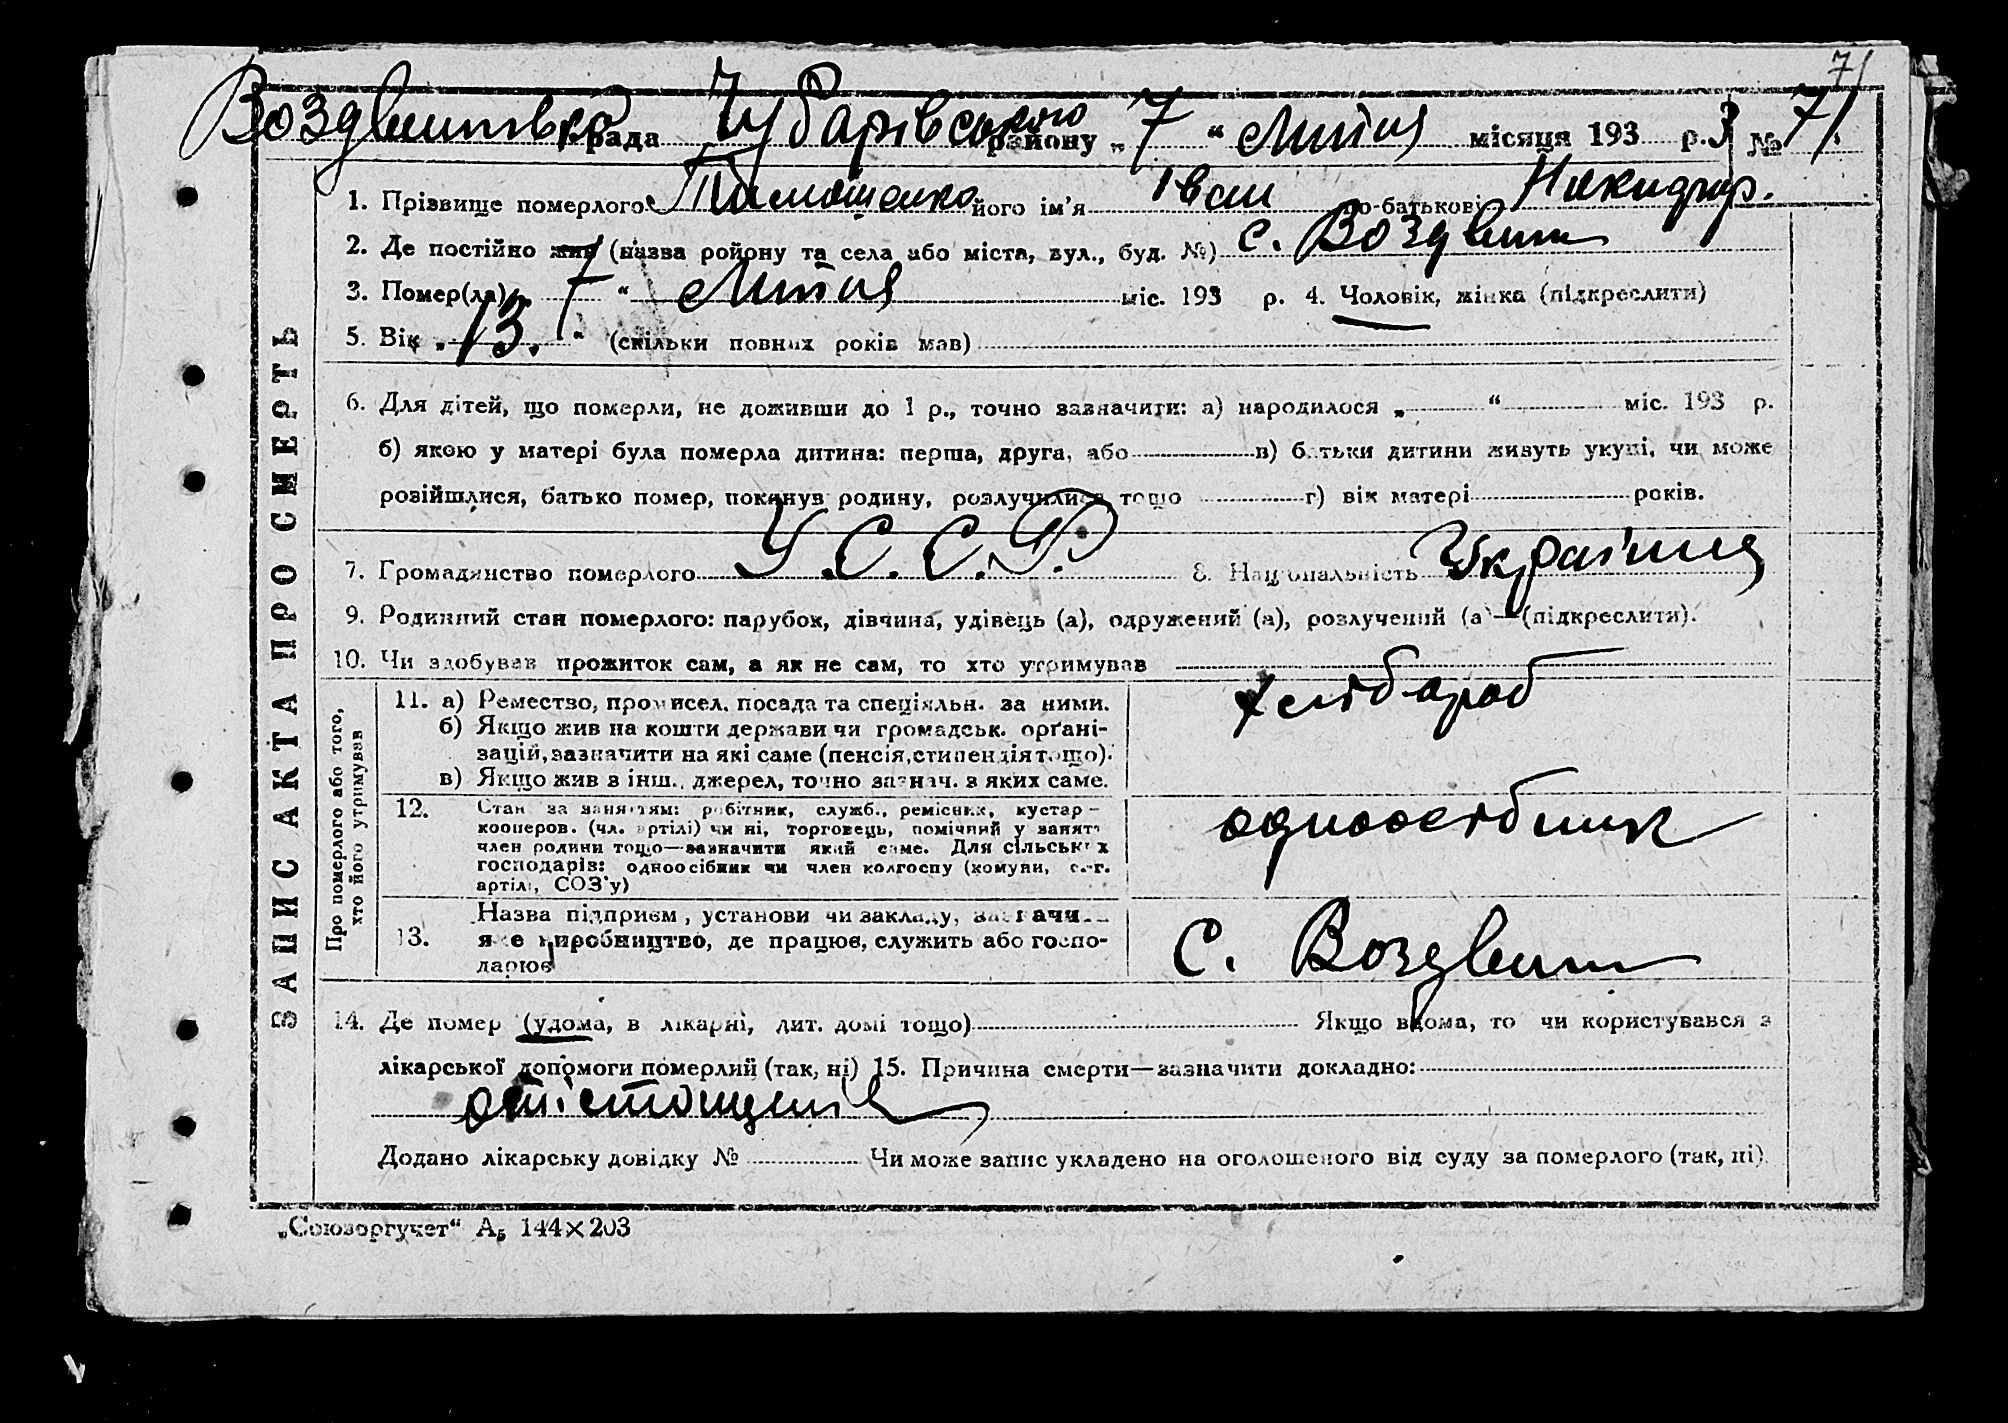 71
Воздвишівска рада Чубарівського району „7“ Липня місяця 193 3 р. № 71
ЗАПИС АКТА ПРО СМЕРТЬ
1. Прізвище померлого Тимошенко його ім'я Іван по-батькові Никифор.
2. Де постійно жив (назва ройону та села або міста, вул., буд. №) с. Воздвиш
3. Помер(ла) „7“ Липня міс. 193 р. 4. Чоловік, жінка (підкреслити)
5. Вік „13.“ (скільки повних років мав)
6. Для дітей, що померли, не доживши до 1 р., точно зазначити: а) народилося „ “ міс. 193 р.
б) якою у матері була померла дитина: перша, друга, або в) батьки дитини живуть укупі, чи може
розійшлися, батько помер, покинув родину, розлучилися тощо г) вік матері років.
7. Громадянство померлого У.С.С.Р. 8. Національність Українец
9. Родинний стан померлого: парубок, дівчина, удівець (а), одружений (а), розлучений (а)—(підкреслити).
10. Чи здобував прожиток сам, а як не сам, то хто утримував
Про померлого або того, хто його утримував
11. а) Ремество, промисел, посада та спеціяльн. за ними.
б) Якщо жив на кошти держави чи громадськ. орґані-
зацій, зазначити на які саме (пенсія, стипендія тощо).
в) Якщо жив з інш. джерел, точно зазнач. з яких саме.
хлібороб
12. Стан за заняттям: робітник, служб., ремісник, кустар—
кооперов. (чл. артілі) чи ні, торговець, помічний у занятт
член родини тощо—зазначити який саме. Для сільських
господарів: одноосібник чи член колгоспу (комуни, с.-г.
артілі, СОЗ'у)
одноосібник
13. Назва підприєм, установи чи закладу, зазначи
яке виробництво, де працює, служить або госпо-
дарює
с. Воздвиш
14. Де помер (удома, в лікарні, дит. домі тощо) Якщо вдома, то чи користувався з
лікарської допомоги померлий (так, ні) 15. Причина смерти—зазначити докладно:
от істощения
Додано лікарську довідку № Чи може запис укладено на оголошеного від суду за померлого (так, ні).
„Союзоргучет“ А5 144×203